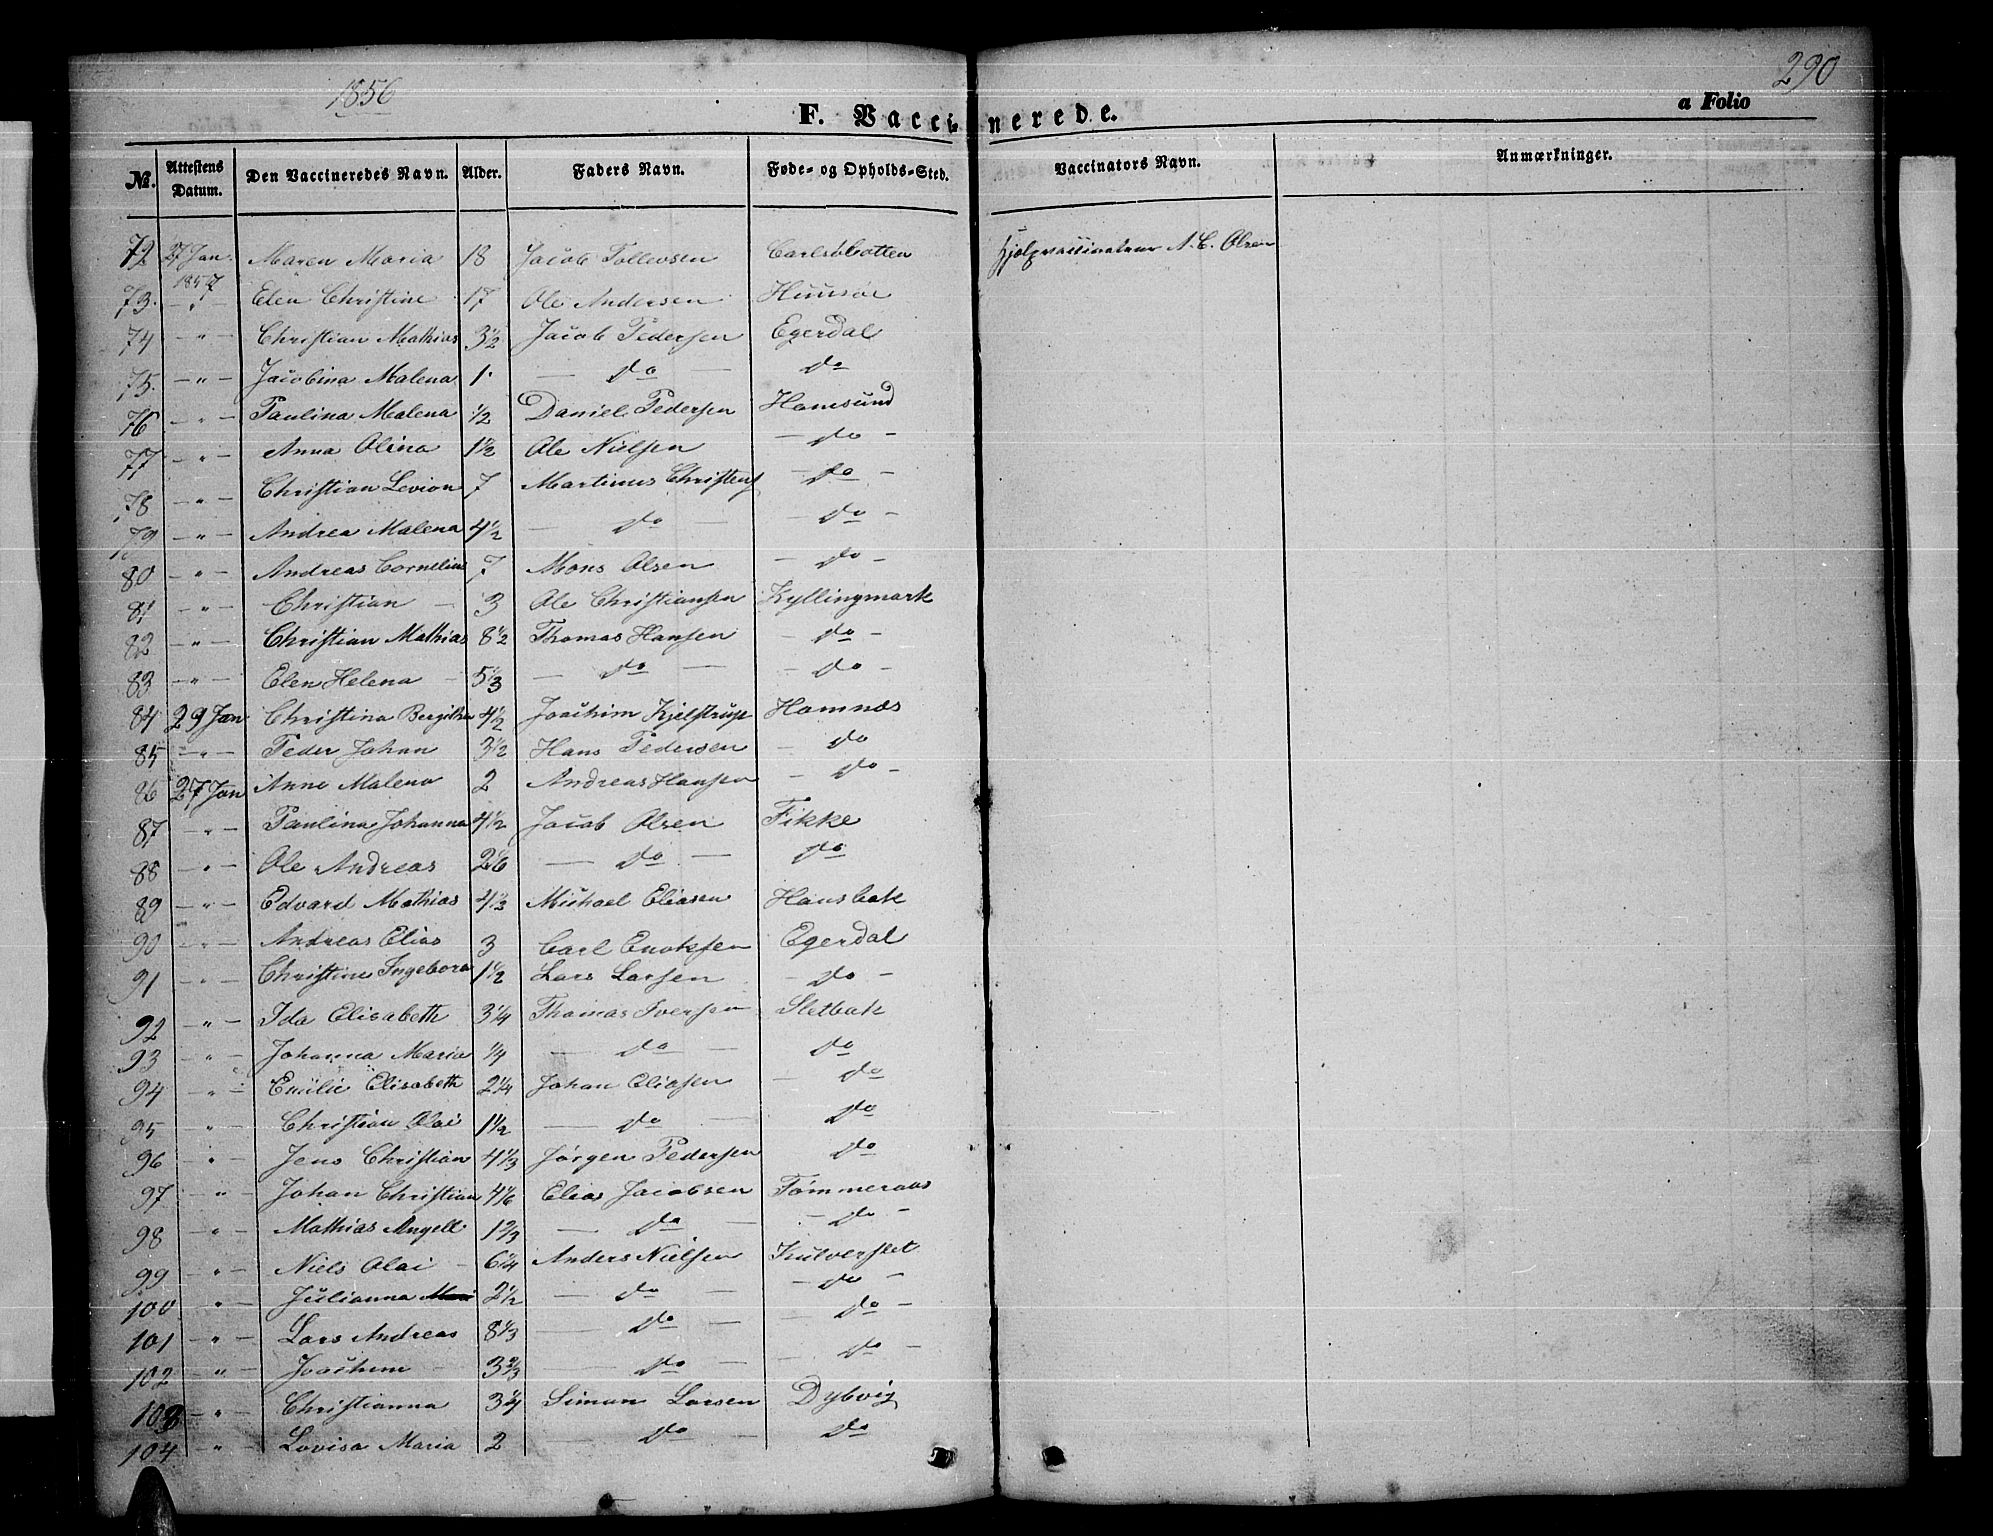 1856
290
F. Vaccinerede.
a Folio
No. Attestens Datum. Den Vaccineredes Navn. Alder. Faders Navn. Føde- og Opholds-Sted. Vaccinators Navn. Anmærkninger.
72 27 Jan. 1857 Maren Maria 18 Jacob Tollevsen Carlsøbotten Hjelpvaccinateur A. C. Olsen
73. " Elen Christine 17 Ole Andersen
74 - " - Christian Mathias 3½ Jacob Pedersen Egerdal
75. - " - Jacobina Malena 1. — do — do
76 - " - Paulina Malena ½ Daniel Pedersen Hamsund
77 - " - Anna Olina 1½ Ole Nielsen - do -
78 - " - Christian 7 Martinus Christens - do -
79 - " - Andrea Malena 4½ — do — - do -
80 - " - Andreas Cornelius 7 Mons Olsen - do -
81 - " - Christian — 3 Ole Christiansen Kyllingmark
82 - " - Christian Mathias 8½ Thomas Hansen - do -
83 - " - Elen Helena - 5⅓ — do — - do -
84 29 Jan Christina Bergitha 4½ Joachim Kjelstrup Hamnæs
85 - " - Peder Johan 3½ Hans Pedersen - do
86 27 Jan Anne Malena 2 Andreas Hansen - do -
87 - " - Paulina Johanna 4½ Jacob Olsen Fikke
88 - " - Ole Andreas 2⅙ — do — do
89 - " - Edvard Mathias 4⅓ Michael Eliasen Hansbak
90 - " - Andreas Elias 3 Carl Enoksen Egerdal
91 - " - Christine Ingeborg 1½ Lars Larsen - do -
92 - " - Ida Elisabeth 3¼ Thomas Iversen Sletbak
93 " - Johanna Maria ¼ — do — do
94 " - Emilie Elisabeth 2¼ Johan Eliasen — do
95 " Christian Olai 1½ — do — do
96 " Jens Christian 4⅓ Jørgen Pedersen do
97 - " Johan Christian 4⅙ Elias Jacobsen Tømmeraas
98 " - Mathias Angell 1⅔ — do — - do -
99 - " - Niels Olai - 6¼ Anders Nielsen Kulverslet
100 " - Julianna 2½ — do — - do -
101 " - Lars Andreas 8⅓ — do — - do -
102 - " - Joachim - 3⅔ — do — - do -
103 - " - Christianna 3¼ Simon Larsen Dybvig
104 - " - Lovisa Maria 2 — do — do